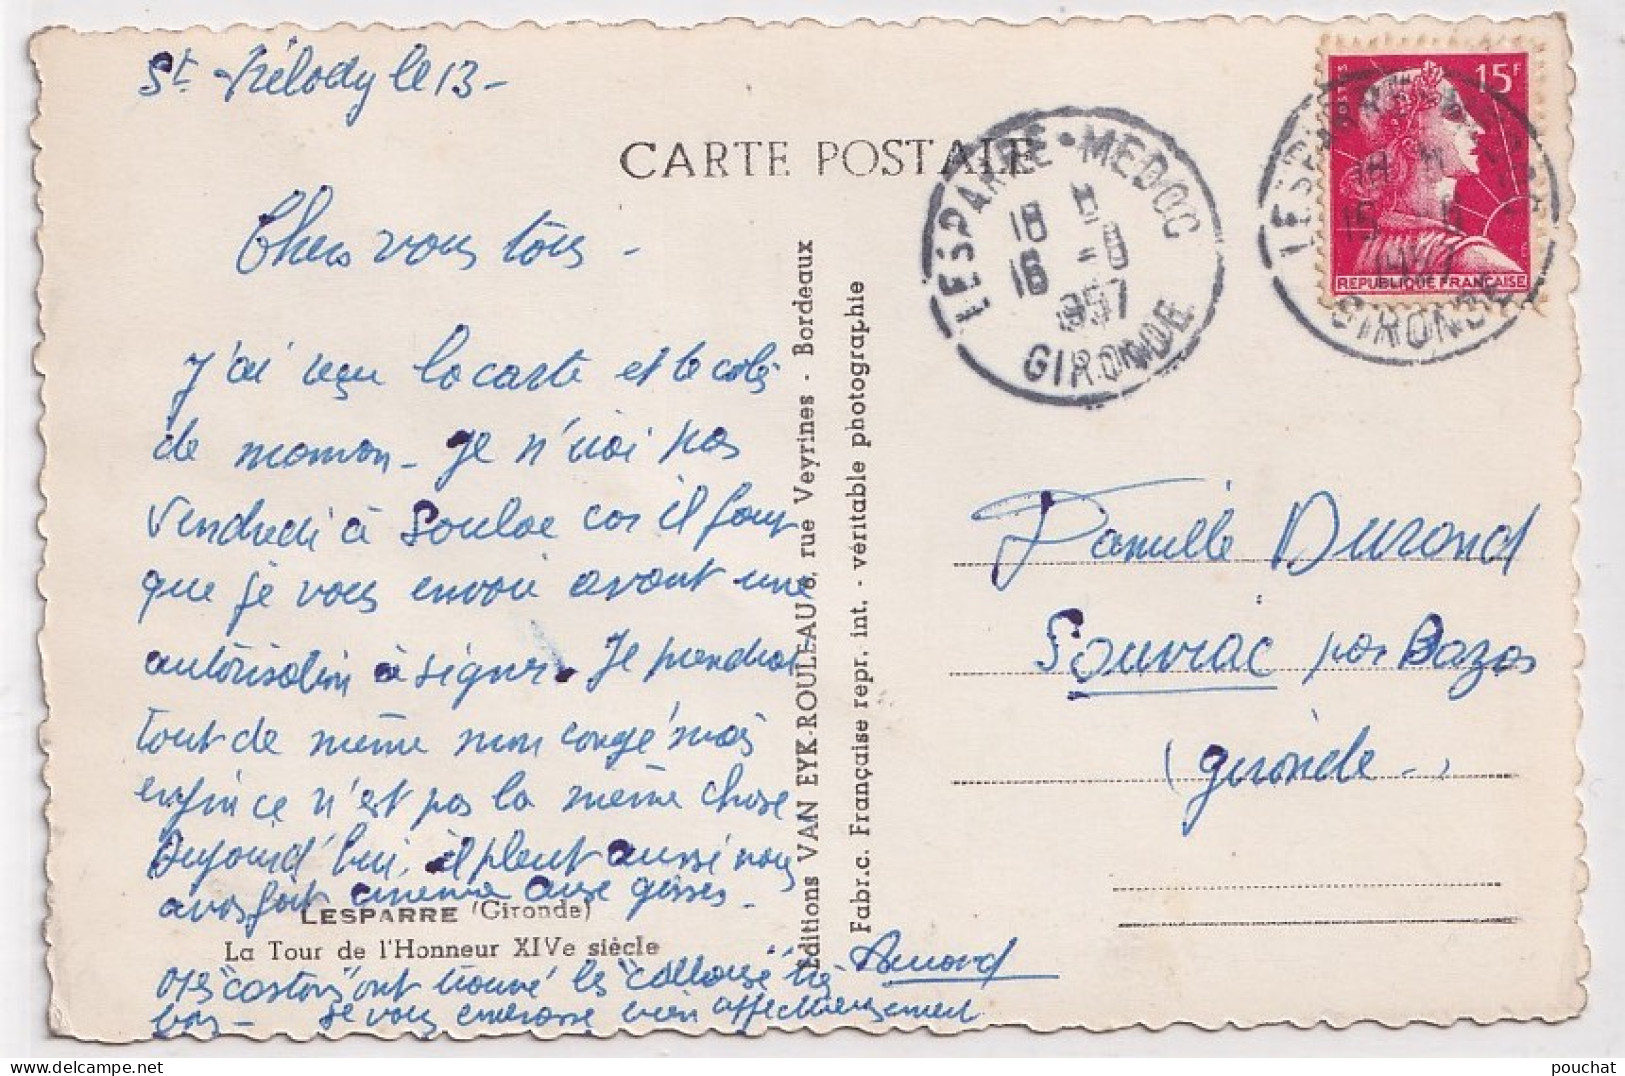 St Trélody le 13 -
CARTE POSTALE
Chers vous tous -
J'ai reçu la carte et le colis
de maman - je n'irai pas
vendredi à Soulac car il faut
que je vous envoie avant une
autorisation à signer. Je prendrai
tout de même mon congé mais
enfin ce n'est pas la même chose
Aujourd'hui, il pleut aussi nous
avons fait
LESPARRE (Gironde)
La Tour de l'Honneur XIVe siècle
"castors" ont trouvé les
bas - Je vous embrasse bien affectueusement
Armand
Editions VAN EYK-ROULEAU 6, rue Veyrines - Bordeaux
Fabr.c. Française repr. int. - véritable photographie
LESPARRE - MEDOC
18 H
16 - 8
1957
GIRONDE
15F
POSTES
REPUBLIQUE FRANÇAISE
LESPARRE - MEDOC
18 H
1957
GIRONDE
Famille Durand
Sauviac par Bazas
(gironde -)
pouchat